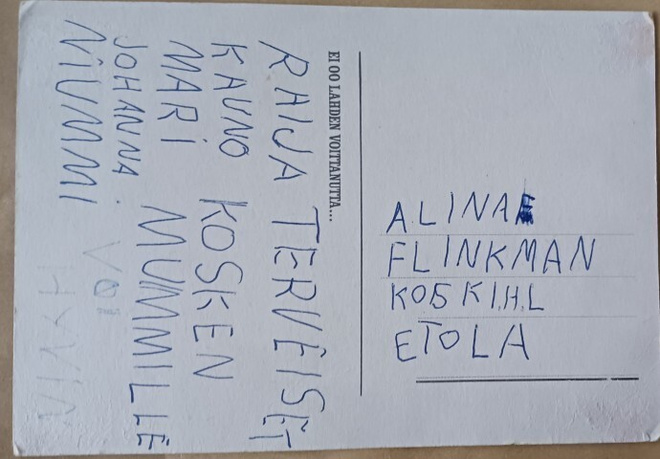 EI OO LAHDEN VOITTANUTTA...
RAIJA TERVEISET
KAUNO KOSKEN
MARI MUMMILLE
JOHANNA VOI
NIUMMI HYVIN
ALINA
FLINKMAN
KOSKI.H.L
ETOLA